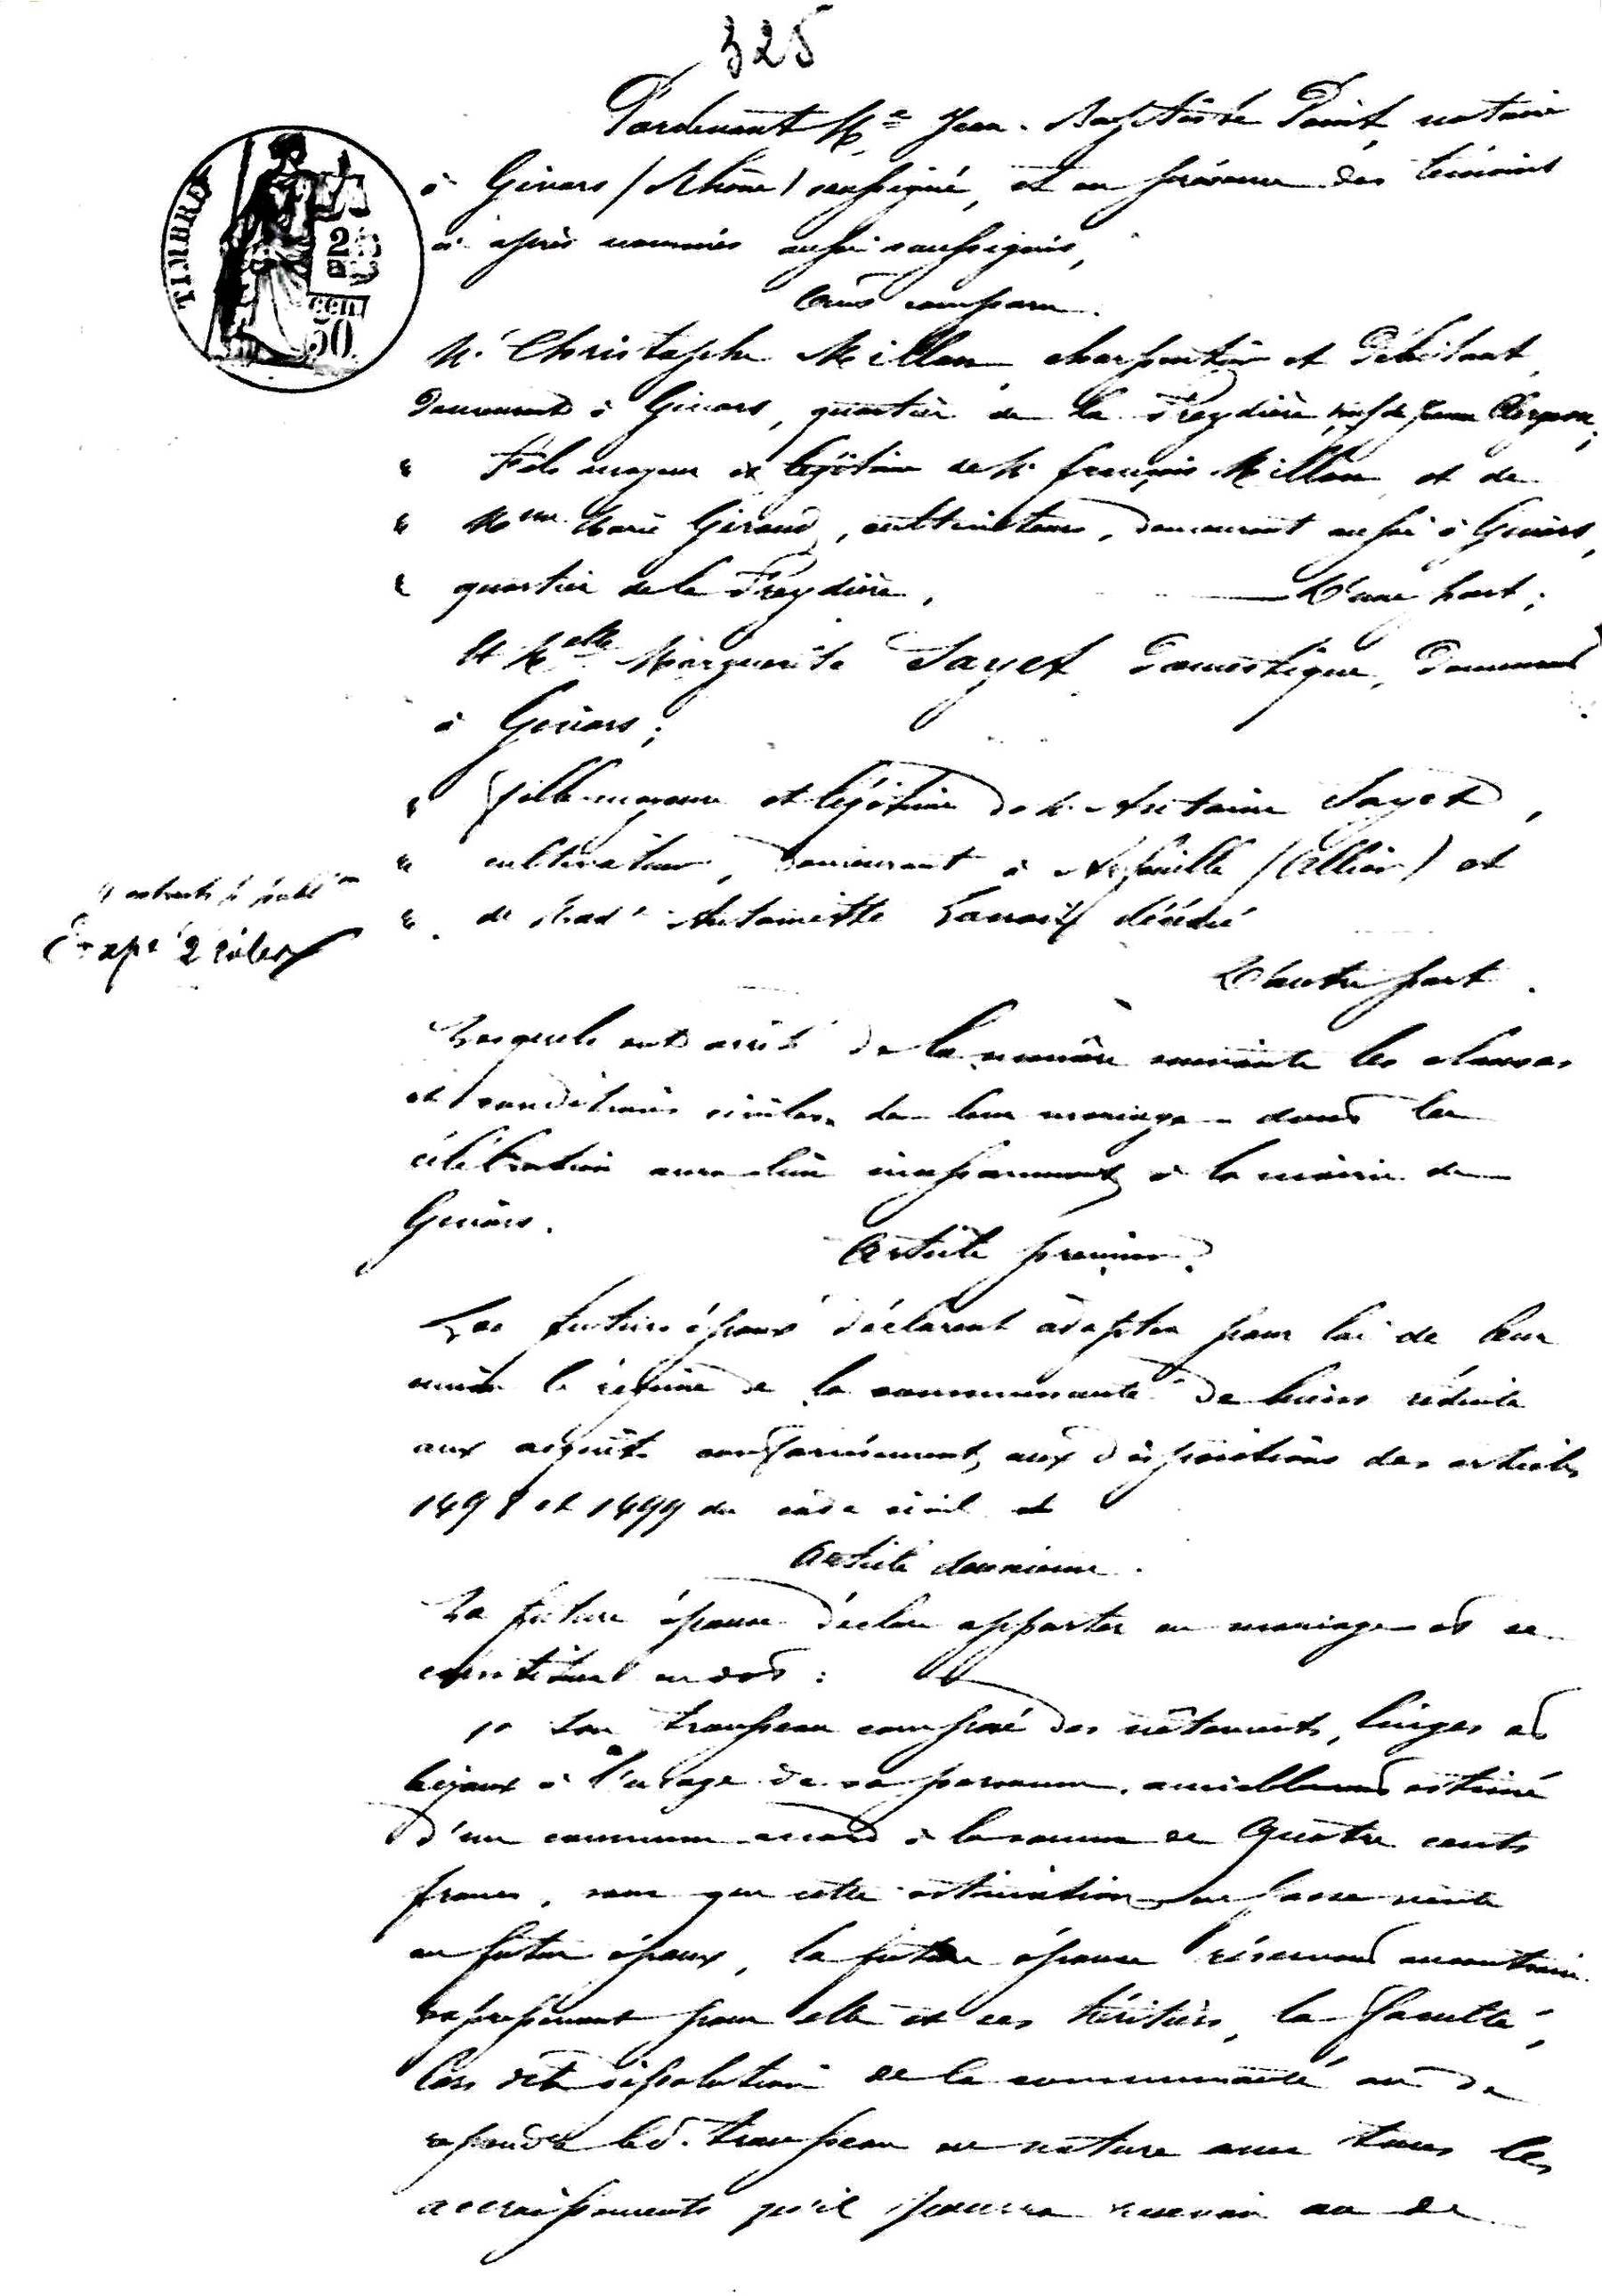 325
Pardevant Me Jean-Baptiste Point, notaire
à Givors (Rhône) soussigné, et en présence des témoins
ci-après nommés aussi soussignés,
TIMBRE
2
50
cen
50
Ont comparu.
M. Christophe Millon, charpentier et débitant,
demeurant à Givors, quartier de la Freydière, veuf de Jeanne
" Fils majeur et légitime de M. François Millon et de
" Mme Marie Giraud, cultivateurs, demeurant aussi à Givors,
" quartier de la Freydière, D'une part;
Et Melle Marguerite Sayet domestique, demeurant
à Givors;
" fille majeure et légitime de M. Antoine Sayet,
" cultivateur, demeurant à (Allier) et
" de Made Antoinette décédée
extraits
Expé 2 rôles
D'autre part.
Lesquels ont arrêté de la manière suivante les clauses
et conditions civiles de leur mariage dont la
célébration aura lieu incessamment à la mairie de
Givors.
Article premier.
Les futurs époux déclarent adopter pour loi de leur
union le régime de la communauté de biens réduite
aux acquêts conformément aux dispositions des articles
1498 et 1499 du code civil
Article deuxième.
La future épouse déclare apporter en mariage et se
constituer en dot:
1o Son trousseau composé des vêtements, linges et
bijoux à l'usage de sa personne, amiablement estimé
d'un commun accord à la somme de Quatre cents
francs, sans que cette estimation en fasse vente
au futur époux, la future épouse réservant au contraire
expressément pour elle et ses héritiers, la faculté,
lors de la dissolution de la communauté ou de
reprendre led. trousseau en nature avec tous les
accroissements qu'il pourra recevoir ou de